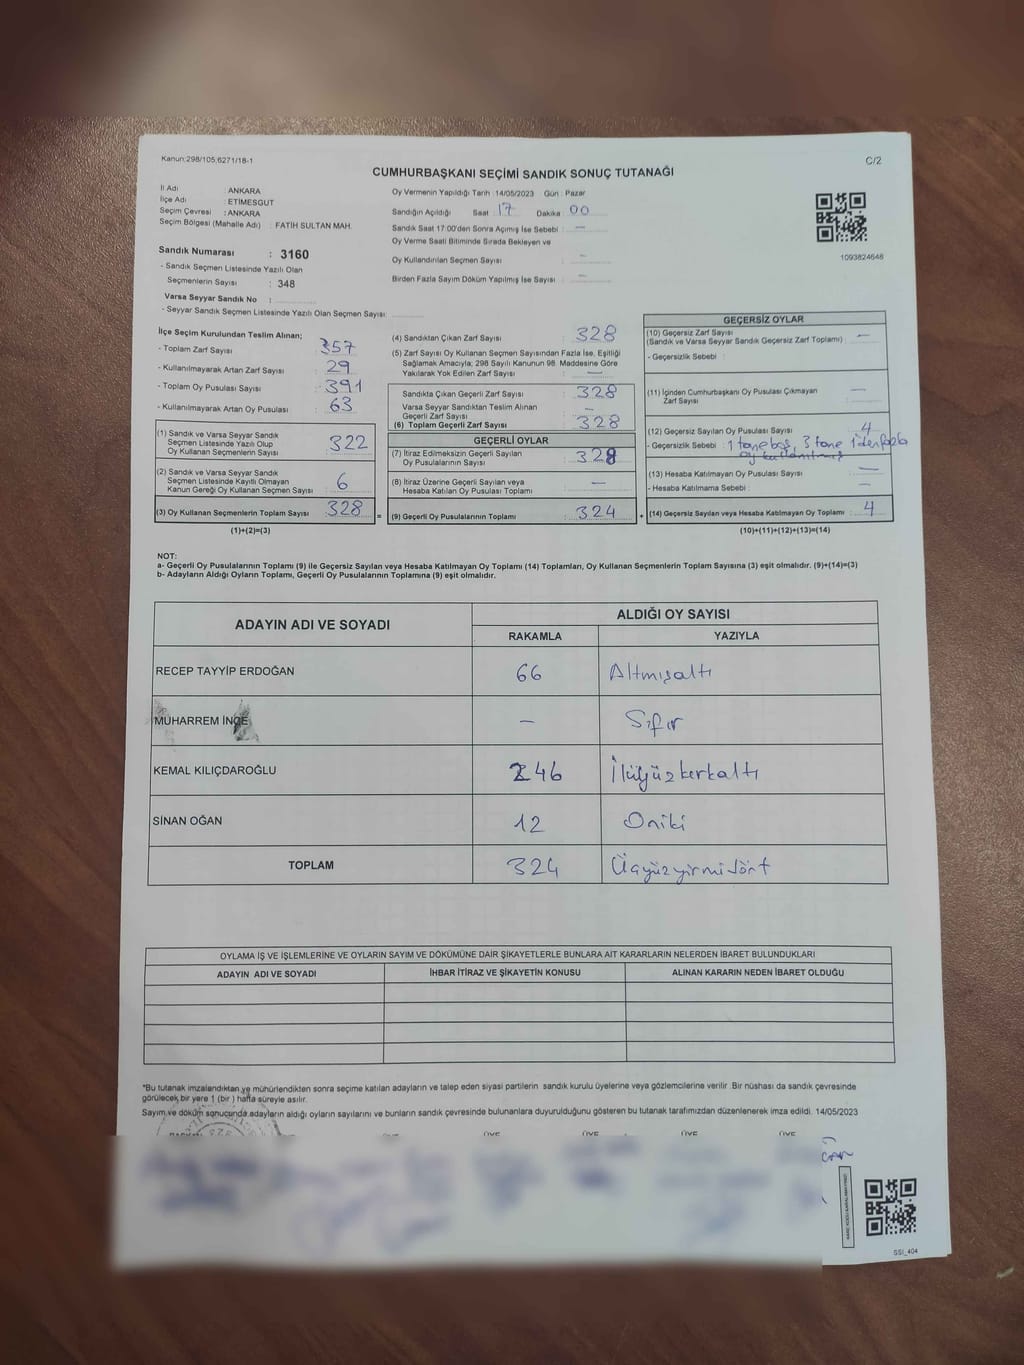 Kanun:298/105,6271/18-1
C/2
CUMHURBAŞKANI SEÇİMİ SANDIK SONUÇ TUTANAĞI
İl Adı : ANKARA
İlçe Adı : ETİMESGUT
Seçim Çevresi : ANKARA
Seçim Bölgesi (Mahalle Adı) : FATİH SULTAN MAH.
Oy Vermenin Yapıldığı Tarih :14/05/2023 Gün : Pazar
Sandığın Açıldığı Saat : 17 Dakika : 00
Sandık Saat 17:00'den Sonra Açımış İse Sebebi : —
Oy Verme Saati Bitiminde Sırada Bekleyen ve
Oy Kullandırılan Seçmen Sayısı : —
Birden Fazla Sayım Döküm Yapılmış İse Sayısı : —
1093824646
Sandık Numarası : 3160
- Sandık Seçmen Listesinde Yazılı Olan
Seçmenlerin Sayısı : 348
Varsa Seyyar Sandık No :
- Seyyar Sandık Seçmen Listesinde Yazılı Olan Seçmen Sayısı:
İlçe Seçim Kurulundan Teslim Alınan;
- Toplam Zarf Sayısı : 357
- Kullanılmayarak Artan Zarf Sayısı : 29
- Toplam Oy Pusulası Sayısı : 391
- Kullanılmayarak Artan Oy Pusulası : 63
(1) Sandık ve Varsa Seyyar Sandık
Seçmen Listesinde Yazılı Olup
Oy Kullanan Seçmen Sayısı : 322
(2) Sandık ve Varsa Seyyar Sandık
Seçmen Listesinde Kayıtlı Olmayan
Kanun Gereği Oy Kullanan Seçmen Sayısı : 6
(3) Oy Kullanan Seçmenlerin Toplam Sayısı : 328 =
(1)+(2)=(3)
(4) Sandıktan Çıkan Zarf Sayısı : 328
(5) Zarf Sayısı Oy Kullanan Seçmen Sayısından Fazla İse, Eşitliği
Sağlamak Amacıyla; 298 Sayılı Kanunun 98. Maddesine Göre
Yakılarak Yok Edilen Zarf Sayısı : —
Sandıkta Çıkan Geçerli Zarf Sayısı : 328
Varsa Seyyar Sandıktan Teslim Alınan
Geçerli Zarf Sayısı : —
(6) Toplam Geçerli Zarf Sayısı : 328
GEÇERLİ OYLAR
(7) İtiraz Edilmeksizin Geçerli Sayılan
Oy Pusulalarının Sayısı : 328
(8) İtiraz Üzerine Geçerli Sayılan veya
Hesaba Katılan Oy Pusulası Toplamı : —
(9) Geçerli Oy Pusulalarının Toplamı : 324 +
GEÇERSİZ OYLAR
(10) Geçersiz Zarf Sayısı
(Sandık ve Varsa Seyyar Sandık Geçersiz Zarf Toplamı) : —
- Geçersizlik Sebebi :
(11) İçinden Cumhurbaşkanı Oy Pusulası Çıkmayan
Zarf Sayısı : —
(12) Geçersiz Sayılan Oy Pusulası Sayısı : 4
- Geçersizlik Sebebi : 1 tane boş, 3 tane 1'den fazla
oy kullanılmış
(13) Hesaba Katılmayan Oy Pusulası Sayısı : —
- Hesaba Katılmama Sebebi : —
(14) Geçersiz Sayılan veya Hesaba Katılmayan Oy Toplamı : 4
(10)+(11)+(12)+(13)=(14)
NOT:
a- Geçerli Oy Pusulalarının Toplamı (9) ile Geçersiz Sayılan veya Hesaba Katılmayan Oy Toplamı (14) Toplamları, Oy Kullanan Seçmenlerin Toplam Sayısına (3) eşit olmalıdır. (9)+(14)=(3)
b- Adayların Aldığı Oyların Toplamı, Geçerli Oy Pusulalarının Toplamına (9) eşit olmalıdır.
ADAYIN ADI VE SOYADI ALDIĞI OY SAYISI
RAKAMLA YAZIYLA
RECEP TAYYİP ERDOĞAN 66 Altmışaltı
MUHARREM İNCE — Sıfır
KEMAL KILIÇDAROĞLU 246 İkiyüzkırkaltı
SİNAN OĞAN 12 Oniki
TOPLAM 324 Üçyüzyirmidört
OYLAMA İŞ VE İŞLEMLERİNE VE OYLARIN SAYIM VE DÖKÜMÜNE DAİR ŞİKAYETLERLE BUNLARA AİT KARARLARIN NELERDEN İBARET BULUNDUKLARI
ADAYIN ADI VE SOYADI İHBAR İTİRAZ VE ŞİKAYETİN KONUSU ALINAN KARARIN NEDEN İBARET OLDUĞU
*Bu tutanak imzalandıktan ve mühürlendikten sonra seçime katılan adayların ve talep eden siyasi partilerin sandık kurulu üyelerine veya gözlemcilerine verilir. Bir nüshası da sandık çevresinde
görülecek bir yere 1 (bir ) hafta süreyle asılır.
Sayım ve döküm sonucunda adayların aldığı oyların sayılarını ve bunların sandık çevresinde bulunanlara duyurulduğunu gösteren bu tutanak tarafımızdan düzenlenerek imza edildi. 14/05/2023
ÜYE ÜYE ÜYE ÜYE ÜYE
SSI_404